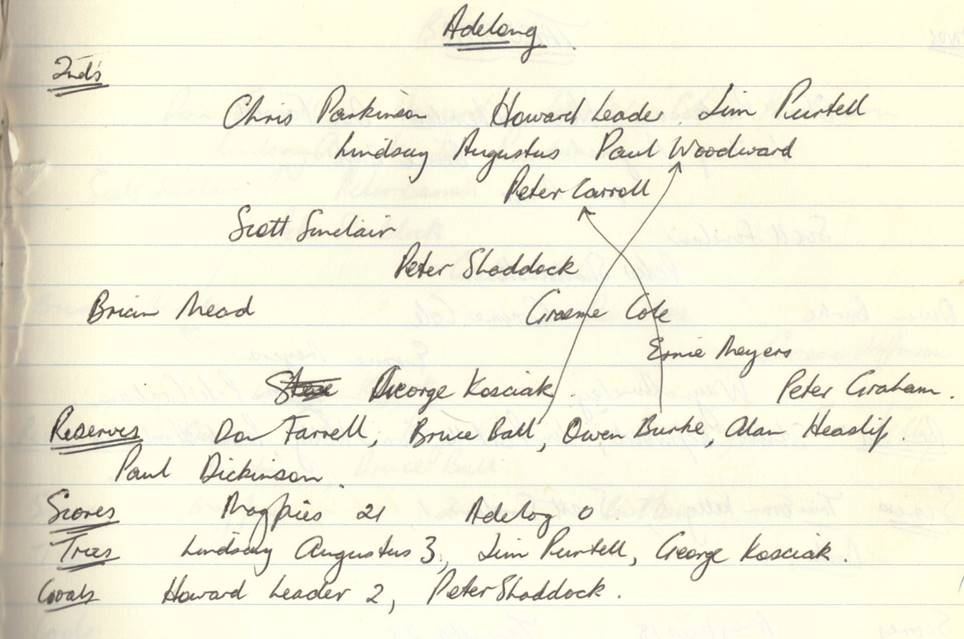 Adelong
2nd's
Chris Parkinson Howard Leader Jim Purtell
Lindsay Augustus Paul Woodward
Peter Carroll
Scott Sinclair
Peter Shaddock
Brian Mead Graeme Cole
Ernie Meyers
George Kosciak. Peter Graham.
Reserves Don Farrell, Bruce Ball, Owen Burke, Alan Heaslip.
Paul Dickinson.
Scores Magpies 21 Adelog 0.
Tries Lindsay Augustus 3, Jim Purtell, George Kosciak.
Goals Howard Leader 2, Peter Shaddock.